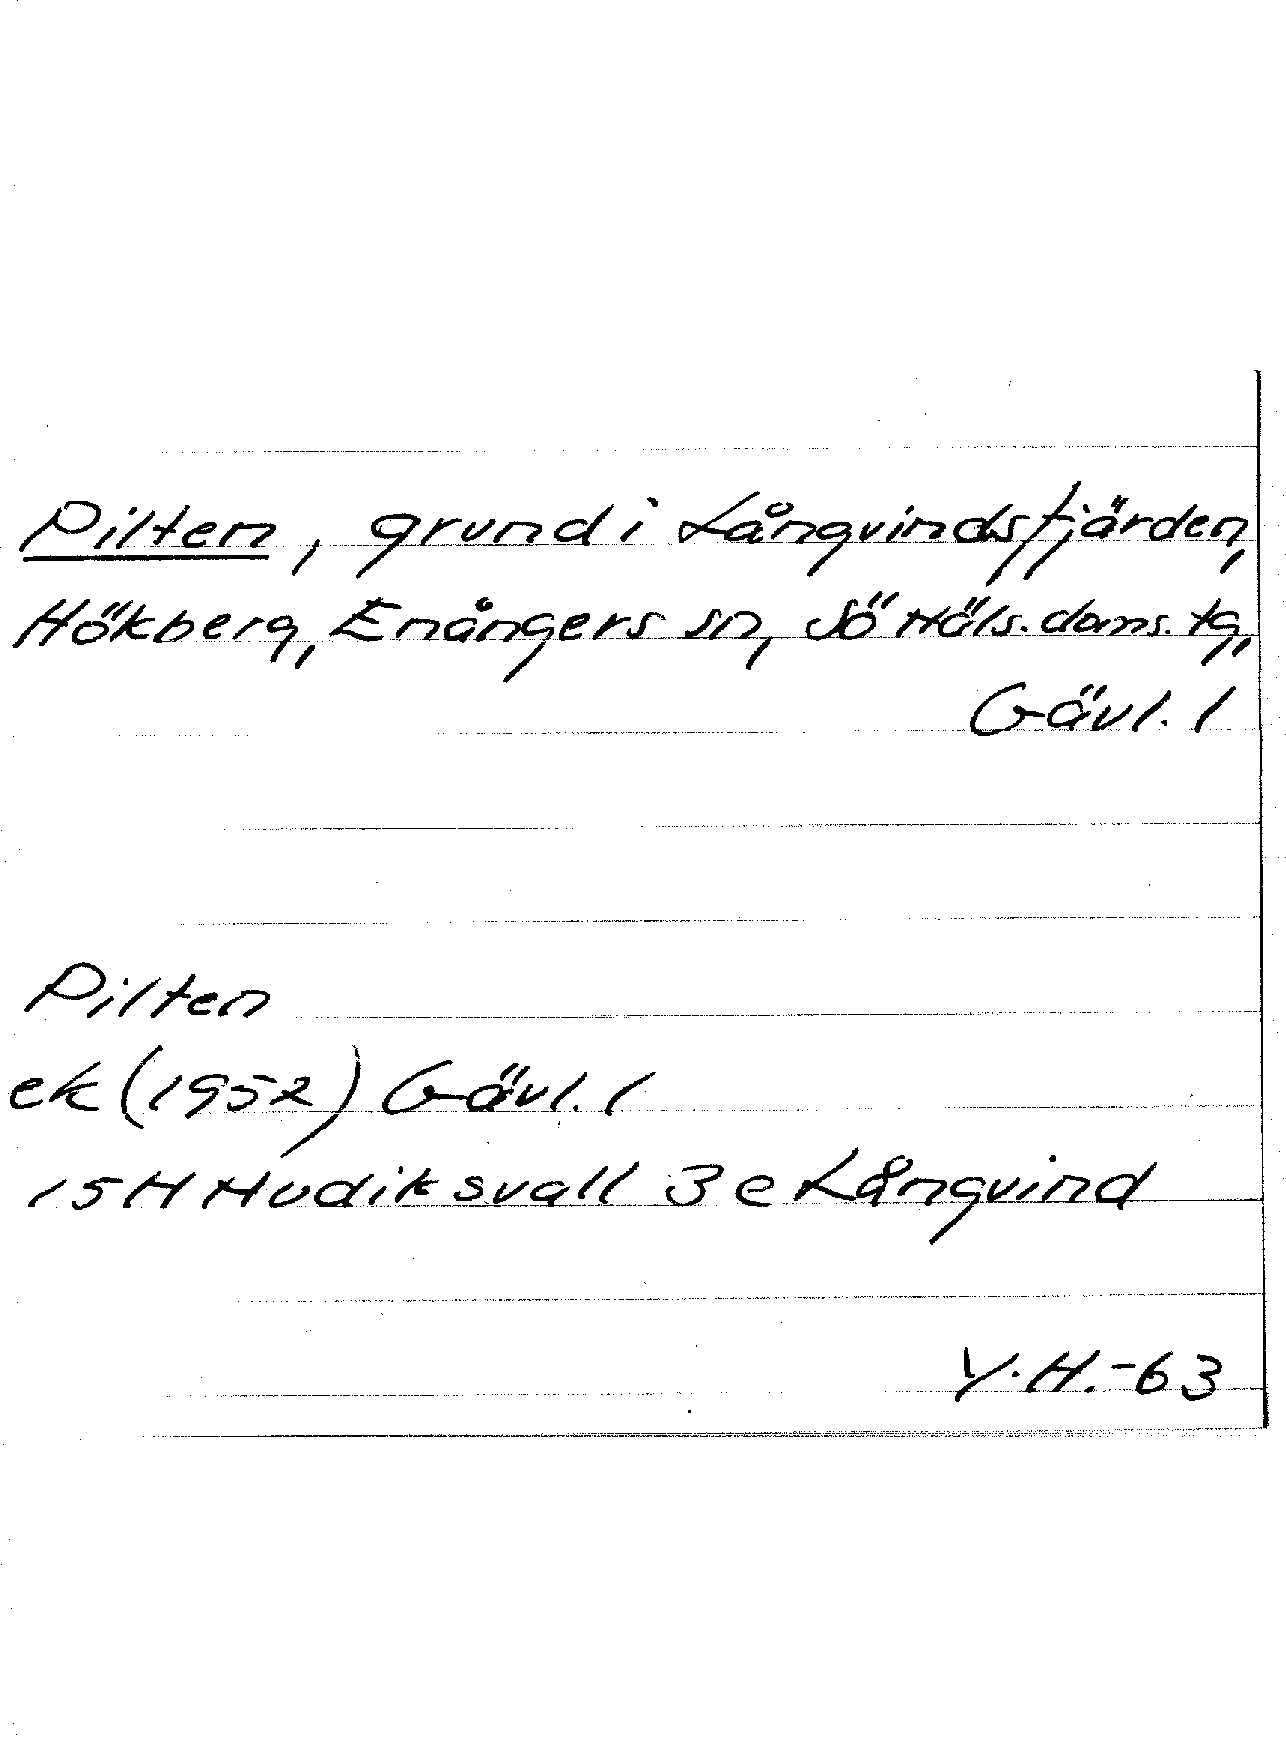 Pilten, grund i Långvindsfjärden,
Hökberg, Enångers sn, Sö Häls. doms. tg,
Gävl. l
Pilten
ek (1952) Gävl. l
15H Hudiksvall 3 e Långvind
Y.H.-63